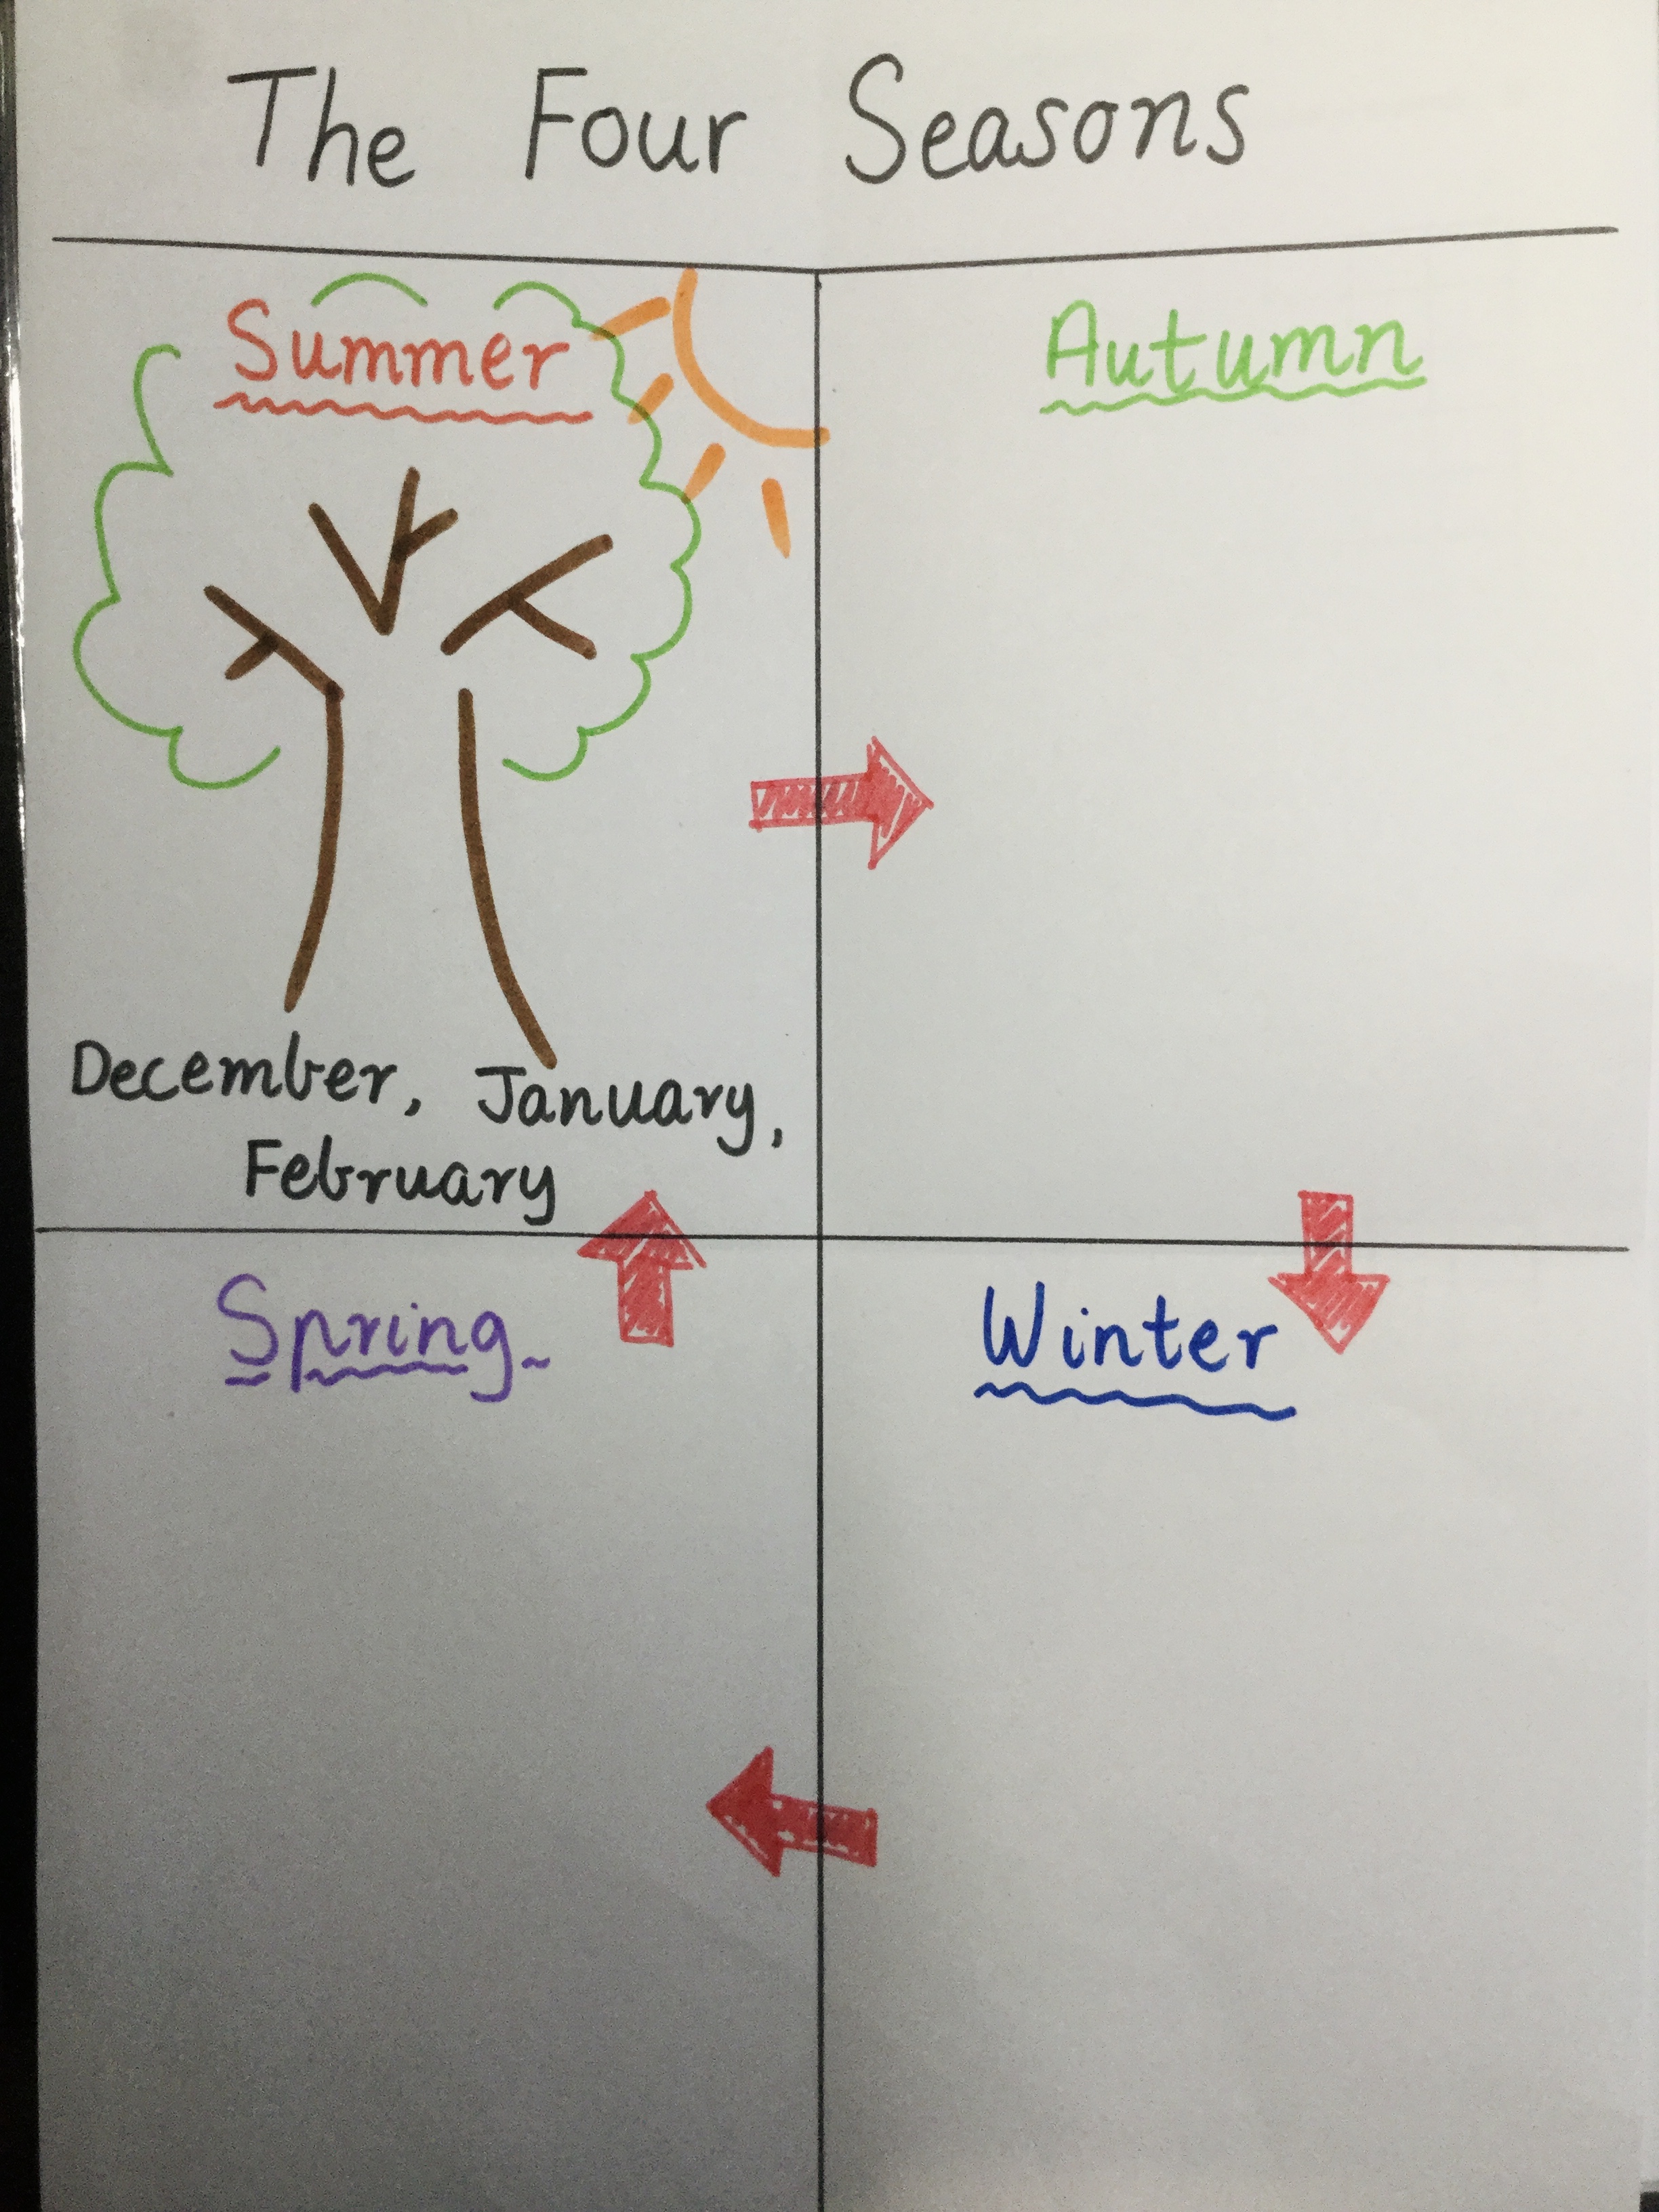 The Four Seasons
Summer
Autumn
December, January,
February
Spring
Winter